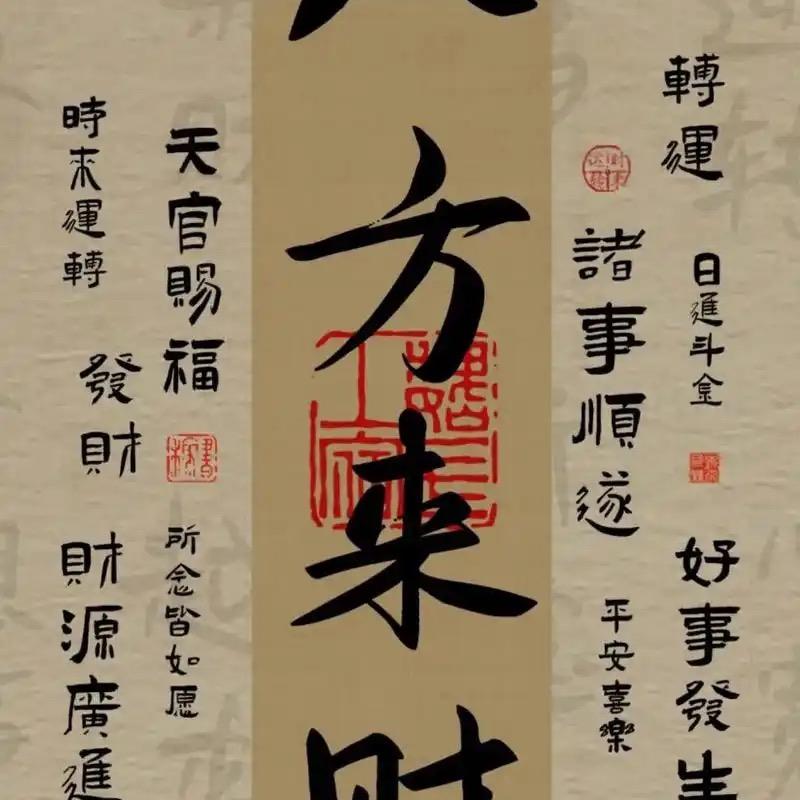 轉運
日進斗金
好事發生
諸事順遂
平安喜樂
八方來財
天官賜福
所念皆如愿
時來運轉
發財
財源廣進